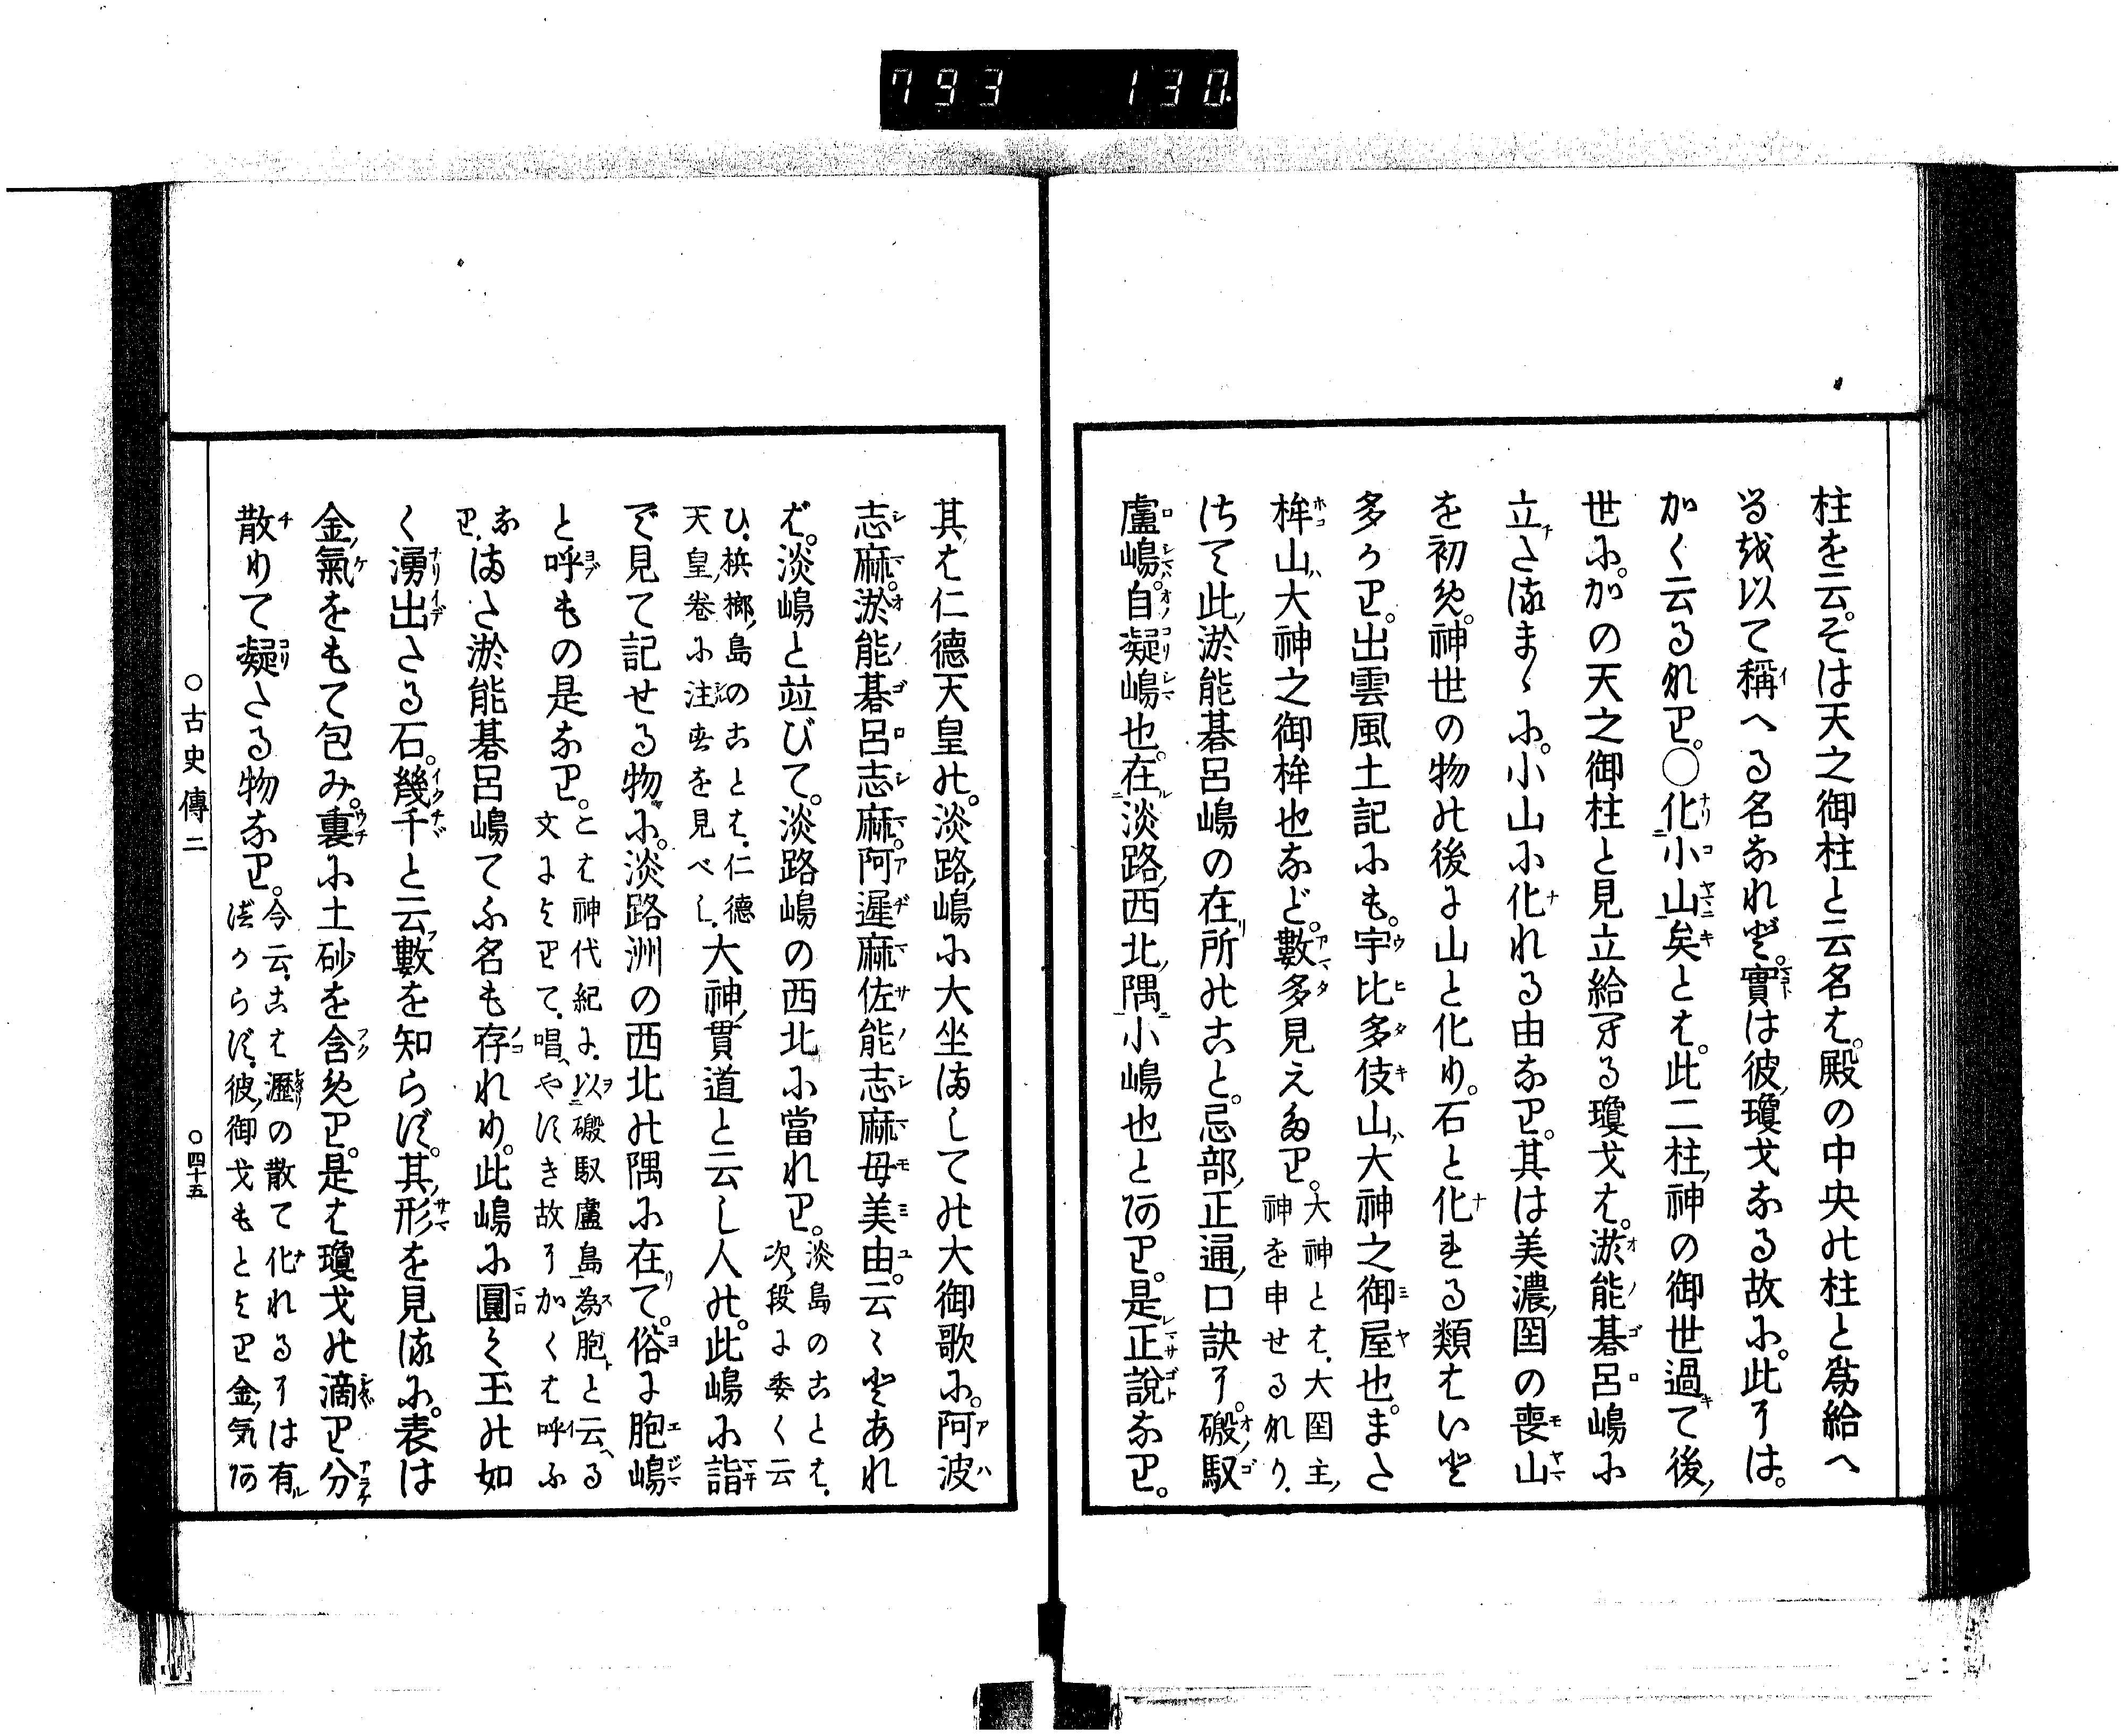 793 130
柱を云。そは天之御柱と云名は。殿の中央の柱と爲給へ
るを以て稱へる名なれど。實は彼瓊戈なる故に。此には。
かく云るなり。○化小山矣とは。此二柱神の御世過て後、
世に。かの天之御柱と見立給へる瓊戈は。淤能碁呂嶋に
立たるまゝに。小山に化れる由なり。其は美濃國の喪山
を初め。神世の物の後に山と化り。石と化れる類はいと
多かり。出雲風土記にも。宇比多伎山大神之御屋也。また
桙山大神之御桙也など。數多見えたり。大神とは、大国主神を申せるなり、
さて此淤能碁呂嶋の在所のこと。忌部正通口訣に。磤馭
盧嶋。自凝嶋也。在淡路西北隅小嶋也とあり。是正說なり。
其は仁德天皇の。淡路嶋に大坐ましての大御歌に。阿波
志麻。淤能碁呂志麻。阿遲麻佐能志麻母美由。云々とあれ
ば。淡嶋と竝びて。淡路嶋の西北に當れり。淡島のことは、次段に委く云
ひ、檳榔島のことは、仁德天皇卷に注すを見べし、大神貫道と云し人の。此嶋に詣
で見て記せる物に。淡路洲の西北の隅に在て。俗に胞嶋
と呼もの是なり。とは神代紀に、以磤馭盧島為胞と云る文によりて、唱へやすき故にかくは呼ふ
なり、また淤能碁呂嶋てふ名も存れり。此嶋に圓く玉の如
く湧出たる石。幾千と云數を知らず。其形を見るに。表は
金氣をもて包み。裏に土砂を含めり。是は瓊戈の滴り分
散りて凝たる物なり。今云、こは瀝の散て化れるには有べからず、彼御戈もとより金気あ
○古史傳二 ○四十五